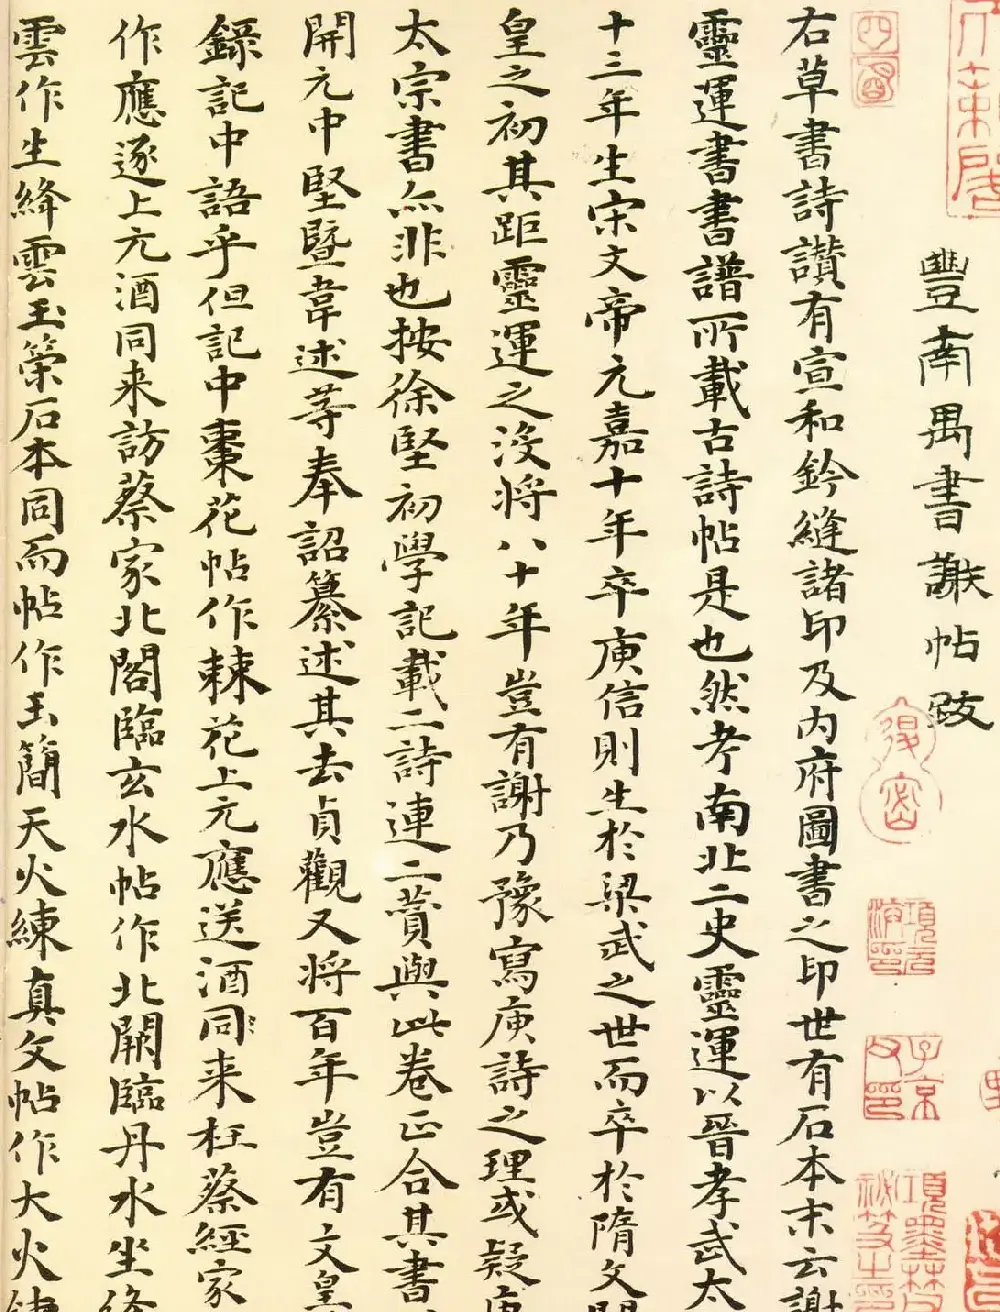 豐南禺書謝帖跋
右草書詩讃有宣和鈐縫諸印及内府圖書之印世有石本末云謝
靈運書書譜所載古詩帖是也然考南北二史靈運以晉孝武太
十三年生宋文帝元嘉十年卒庾信則生於梁武之世而卒於隋文開
皇之初其距靈運之没将八十年豈有謝乃豫寫庾詩之理或疑唐
太宗書亦非也按徐堅初學記載二詩連二贊與此卷正合其書
開元中堅暨韋述等奉詔纂述其去貞觀又将百年豈有文皇
錄記中語乎但記中棗花帖作棘花上元應送酒同来枉蔡經家
作應逐上元酒同来訪蔡家北閣臨玄水帖作北闕臨丹水坐絳
雲作生絳雲玉策石本同而帖作玉簡天火練真文帖作大火練
項元
子京
項墨林